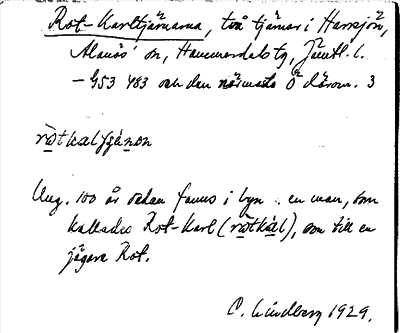 Rot-Karltjärnarna, två tjärnar i Harrsjön,
Alanäs' sn, Hammerdals tg, Jämtl. l.
– G53 483 och den närmaste Ö därom. 3
ro̱tkalfjä̱non
Ung. 100 år sedan fanns i byn en man, som
kallades Rot-Karl (ro̱tka̱l), son till en
jägare Rot.
C. Lindberg 1929.